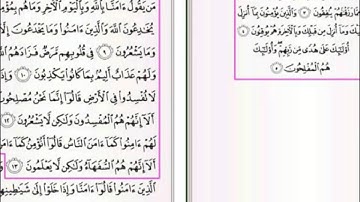 رَزَقْنَٰهُمْ يُنفِقُونَ ٣ وَٱلَّذِينَ يُؤْمِنُونَ بِمَآ أُنزِلَ
إِلَيْكَ وَمَآ أُنزِلَ مِن قَبْلِكَ وَبِٱلْءَاخِرَةِ هُمْ يُوقِنُونَ ٤
أُو۟لَٰٓئِكَ عَلَىٰ هُدًى مِّن رَّبِّهِمْ وَأُو۟لَٰٓئِكَ
هُمُ ٱلْمُفْلِحُونَ ٥
مَن يَقُولُ ءَامَنَّا بِٱللَّهِ وَبِٱلْيَوْمِ ٱلْءَاخِرِ وَمَا هُم
يُخَٰدِعُونَ ٱللَّهَ وَٱلَّذِينَ ءَامَنُوا۟ وَمَا يَخْدَعُونَ
وَمَا يَشْعُرُونَ ٩ فِى قُلُوبِهِم مَّرَضٌ فَزَادَهُمُ
وَلَهُمْ عَذَابٌ أَلِيمٌۢ بِمَا كَانُوا۟ يَكْذِبُونَ ١٠
لَا تُفْسِدُوا۟ فِى ٱلْأَرْضِ قَالُوٓا۟ إِنَّمَا نَحْنُ مُصْلِحُونَ
أَلَآ إِنَّهُمْ هُمُ ٱلْمُفْسِدُونَ وَلَٰكِن لَّا يَشْعُرُونَ ١٢
لَهُمْ ءَامِنُوا۟ كَمَآ ءَامَنَ ٱلنَّاسُ قَالُوٓا۟ أَنُؤْمِنُ كَمَآ ءَامَنَ
أَلَآ إِنَّهُمْ هُمُ ٱلسُّفَهَآءُ وَلَٰكِن لَّا يَعْلَمُونَ ١٣
ٱلَّذِينَ ءَامَنُوا۟ قَالُوٓا۟ ءَامَنَّا وَإِذَا خَلَوْا۟ إِلَىٰ شَيَٰطِينِهِمْ